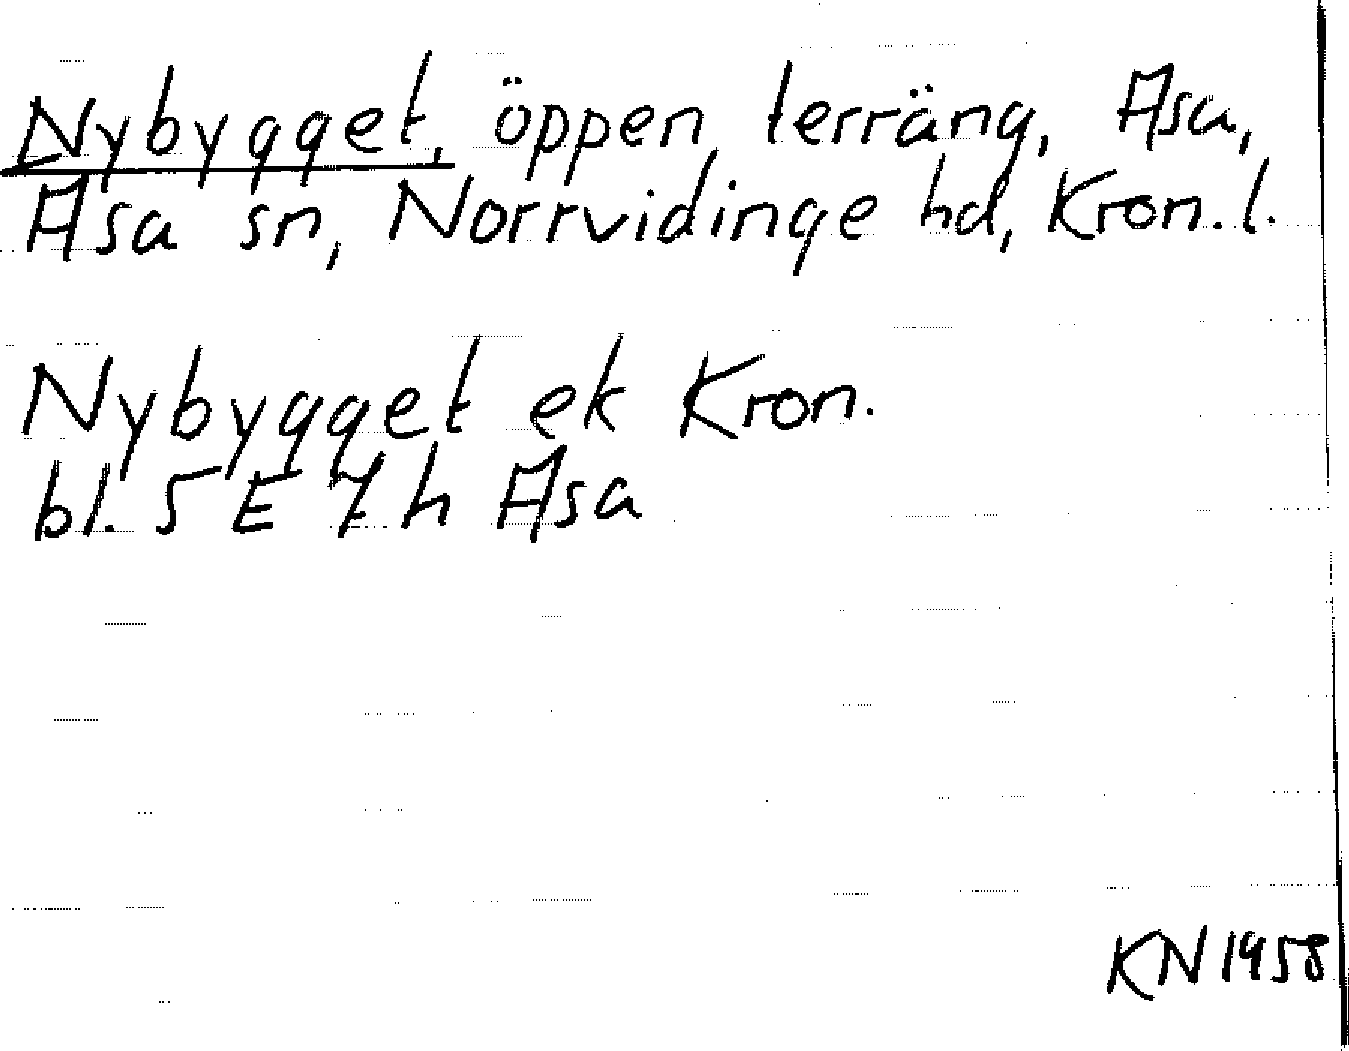 Nybygget, öppen terräng, Asa,
Asa sn, Norrvidinge hd, Kron. l.
Nybygget ek Kron.
bl. 5 E 7 h Asa
KN 1958